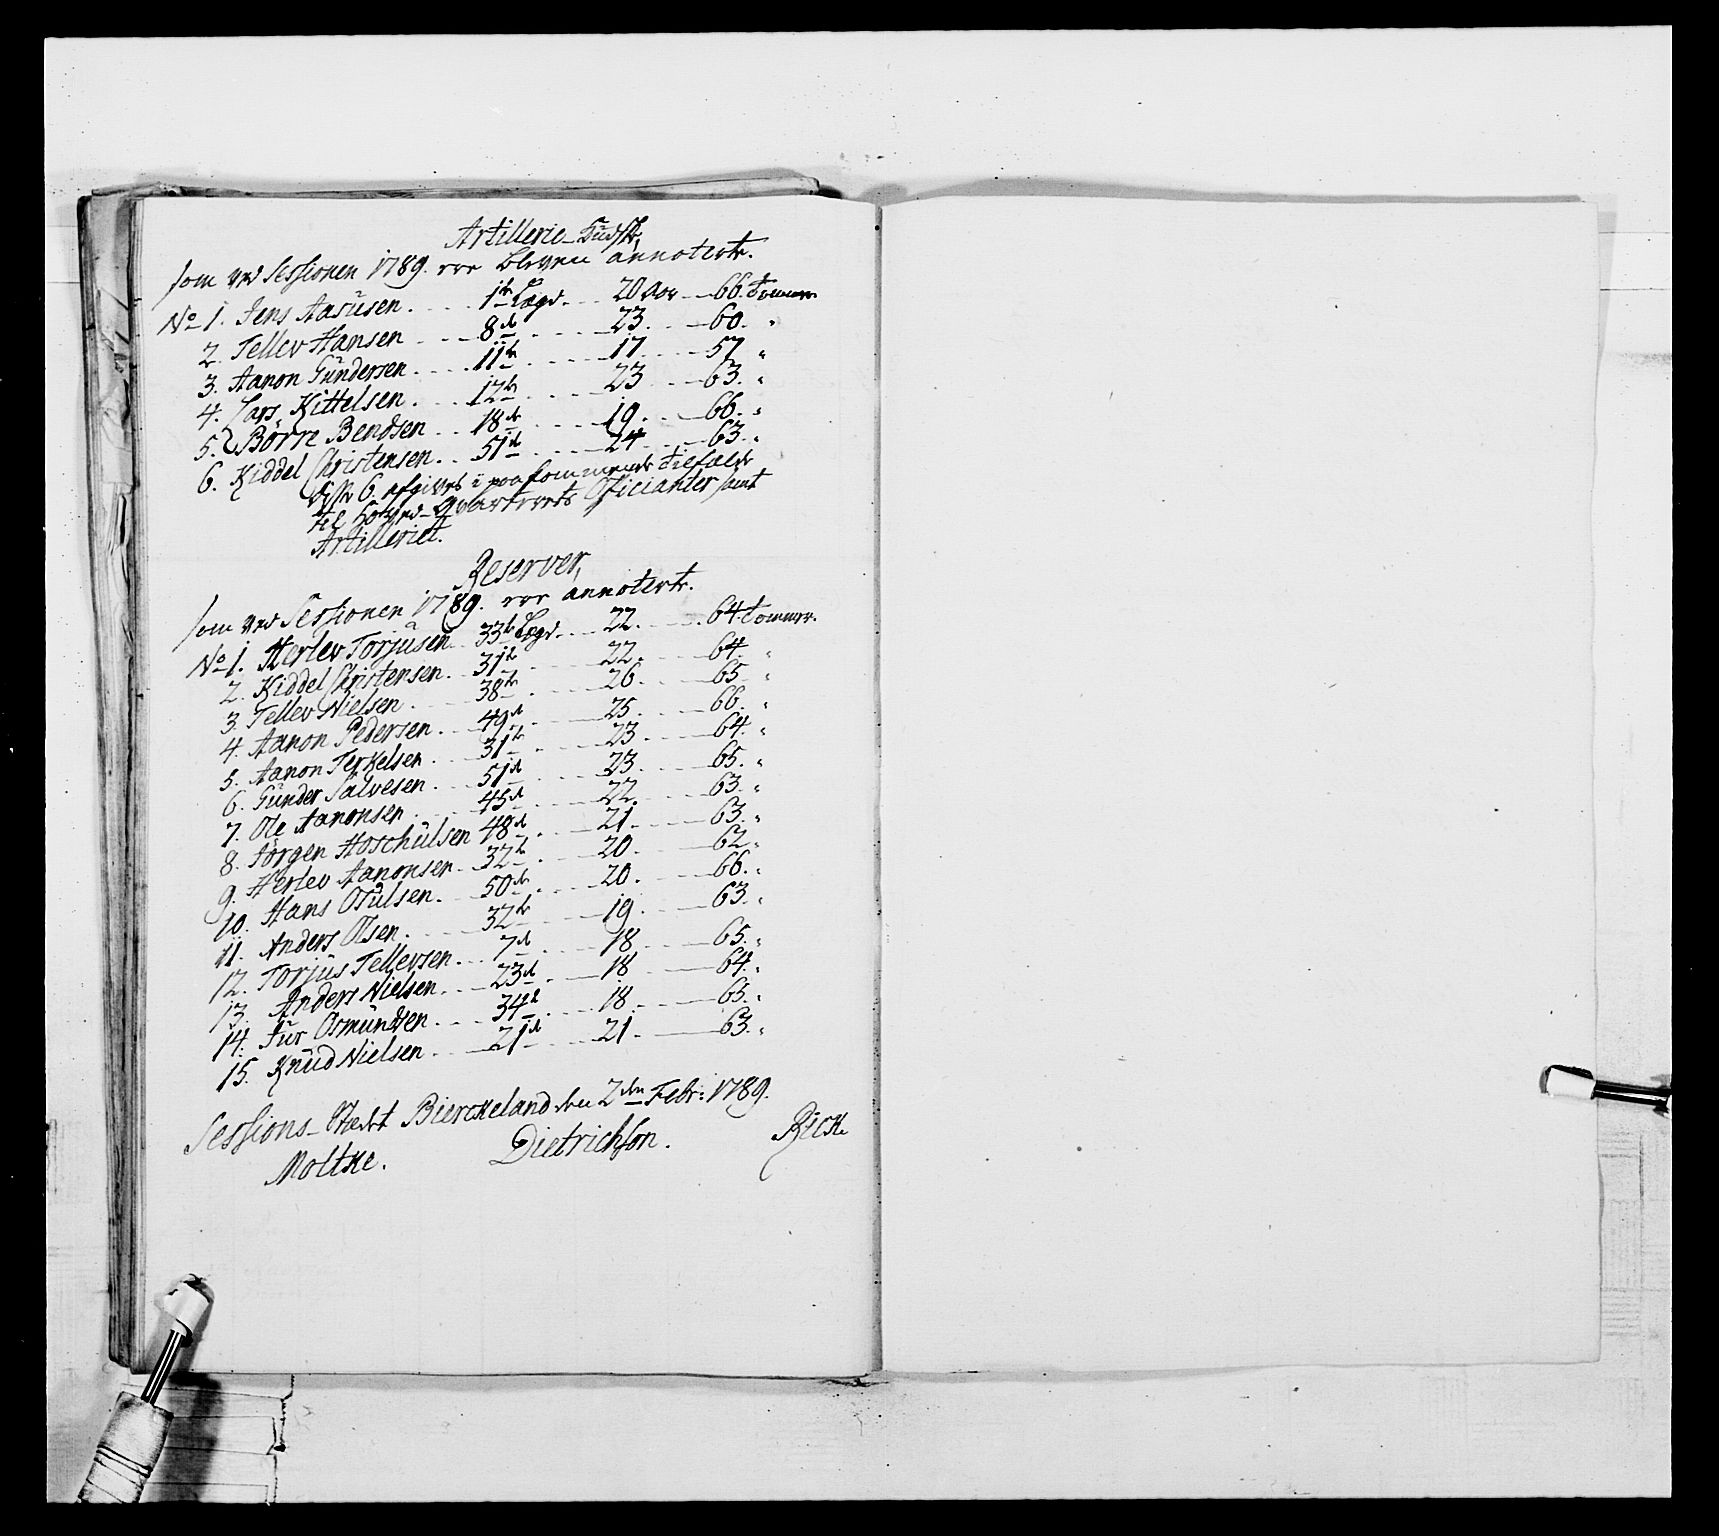 Artillerie-Kudske,
som ved Sessionen 1789. ere bleven annoterte.
No 1. Jens Aasüsen. 1te Lægd. 20 Aar 66. Tommer
2. Tellev Hansen 8de 23. 60. "
3. Aanon Gündersen 11te 17. 57 "
4. Lars Kittelsen. 12te 23 63. "
5. Börre Bendsen 18de 19. 66. "
6. Kiddel Christensen. 51de 24 63. "
disse 6. afgives i paakommende Tilfælde
til Hoved-Qvarterets Officianter samt
Artilleriet.
Reserver,
som ved Sessionen 1789. ere annoterte.
No 1. Herlev Torjüsen 33te Lægd. 22. 64 Tommer.
2. Kiddel Christensen. 31te 22. 64. "
3. Tellev Nielsen 38te 26. 65 "
4. Aanon Pedersen 49de 25. 66. "
5. Aanon Terkelsen 31te 23 64. "
6. Günder Salvesen 51de 23. 65. "
7. Ole Aanonsen 45de 22. 63. "
8. Jörgen Hoschülsen 48de 21. 63. "
9. Herlev Aanonsen 32te 20. 62 "
10. Hans Osülsen. 50de 20. 66. "
11. Anders Olsen. 32te 19. 63. "
12. Torjüs Tellevsen 7de 18. 65. "
13. Anders Nielsen. 23de 18 64. "
14. Jür Osmündsen 34te 18. 65. "
15. Knüd Nielsen 21de 21. 63. "
Sessions-Stædet Bierckeland den 2den Febr: 1789.
Moltke. Dietrichson. Rick